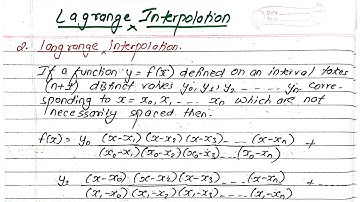 Lagrange Interpolation
2. langrange interpolation.
If a function y = f(x) defined on an interval takes
(n+1) distinct values y0, y1, y2 ..... yn corre-
sponding to x = x0, x1, .... xn which are not
necessarily spaced then.
f(x) = y0 (x-x1)(x-x2)(x-x3)....(x-xn) +
(x0-x1)(x0-x2)(x0-x3)....(x0-xn)
y1 (x-x0)(x-x2)(x-x3)....(x-xn) +
(x1-x0)(x1-x2)(x1-x3)....(x1-xn)